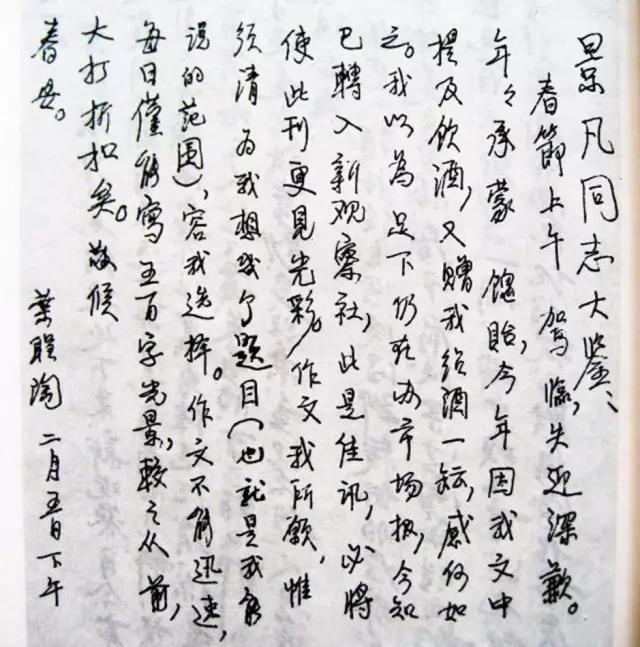 景凡同志大鉴、
春節上午 駕臨,失迎深歉。
年々承蒙 餽貽,今年因我文中
提及飲酒,又赠我绍酒一罈,感何如
之。我以為足下仍在办市场报,今知
已轉入新观察社,此是佳讯,必将
使此刊更見光彩。作文我所願,惟
须请为我想幾个题目(也就是我能
说的范围),容我选择。作文不能迅速,
每日僅能寫五百字光景,較之从前,
大打折扣矣。敬候
春安。
葉聖陶 二月五日下午